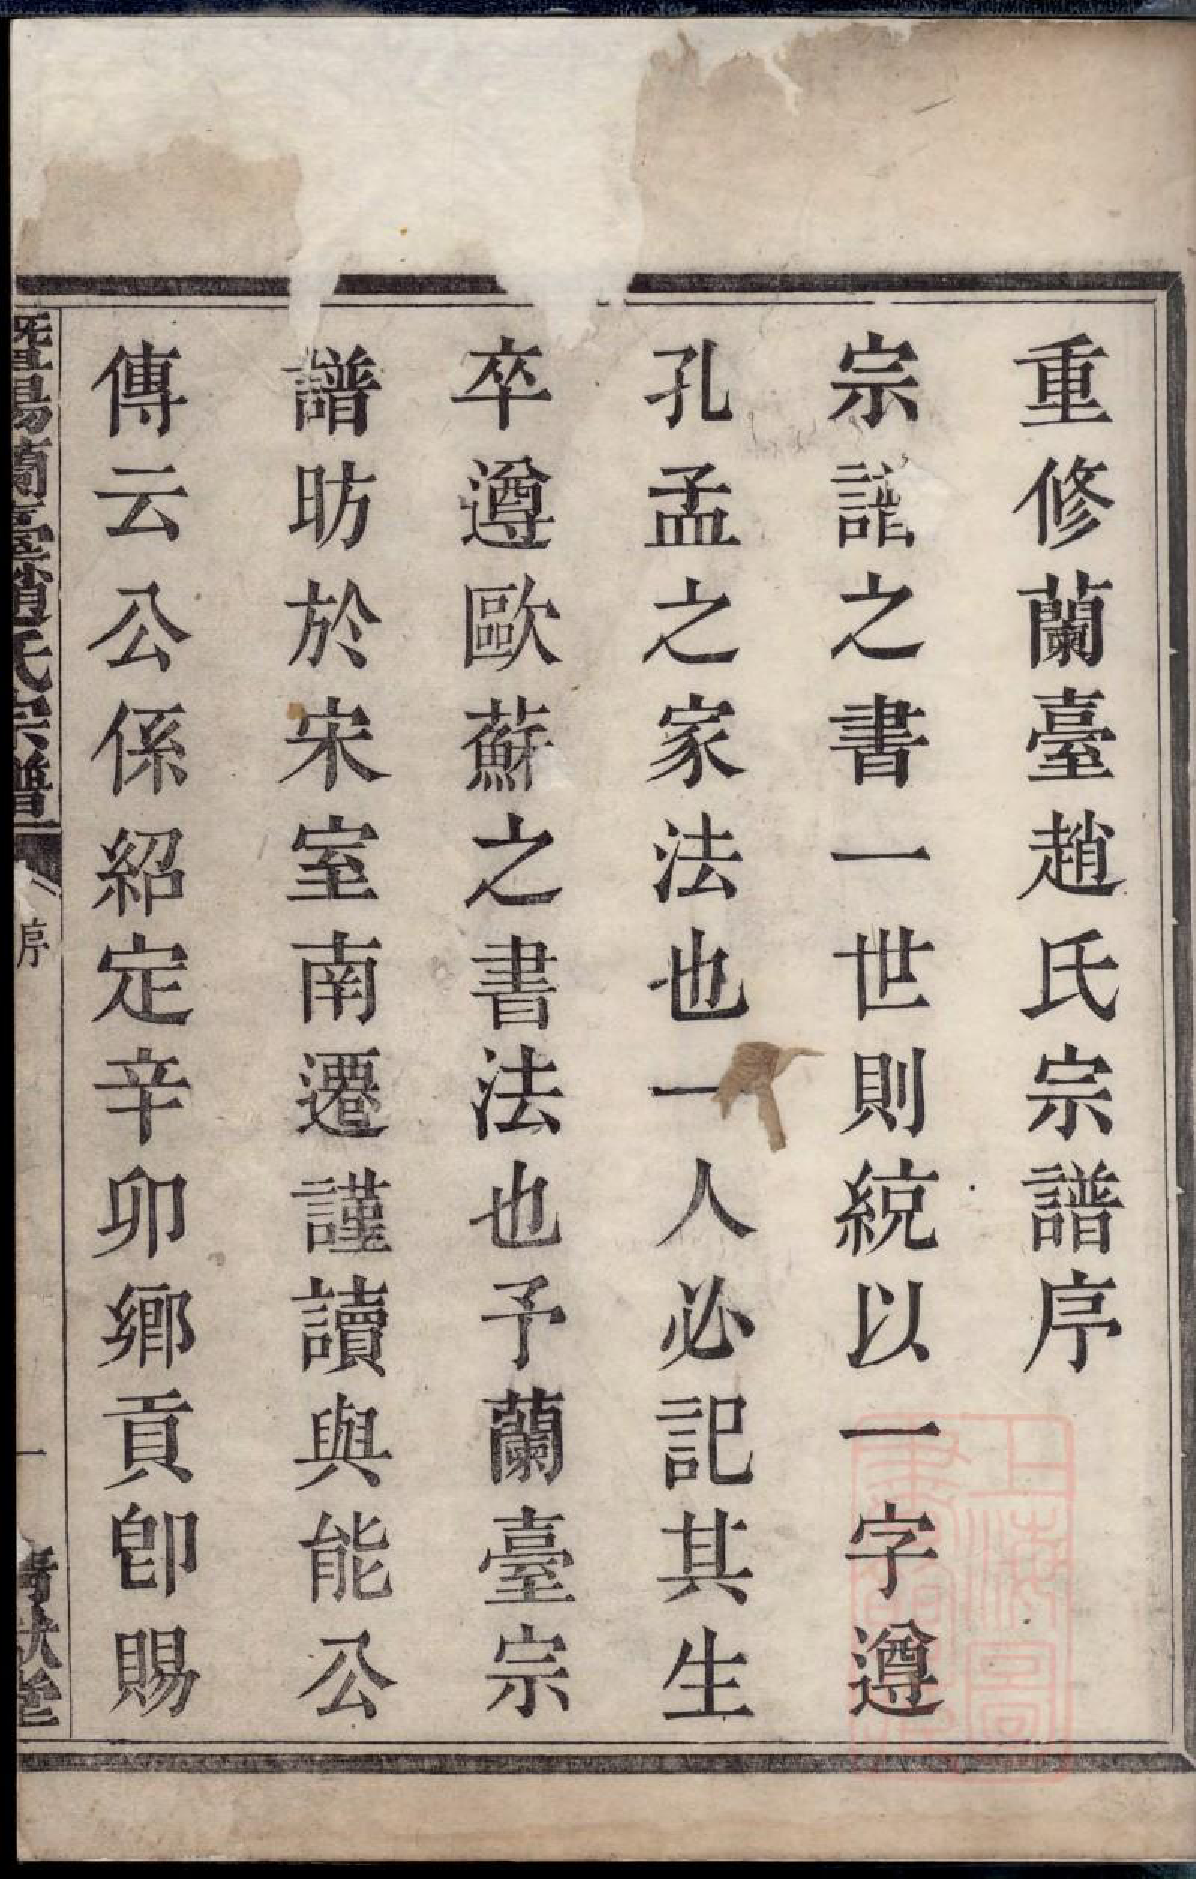 重修蘭臺趙氏宗譜序
宗譜之書一世則統以一字遵
孔孟之家法也一人必記其生
卒遵歐蘇之書法也予蘭臺宗
譜昉於宋室南遷謹讀與能公
傳云公係紹定辛卯鄉貢卽賜
暨陽蘭臺趙氏宗譜
序
一
清獻堂
上海圖
書館藏